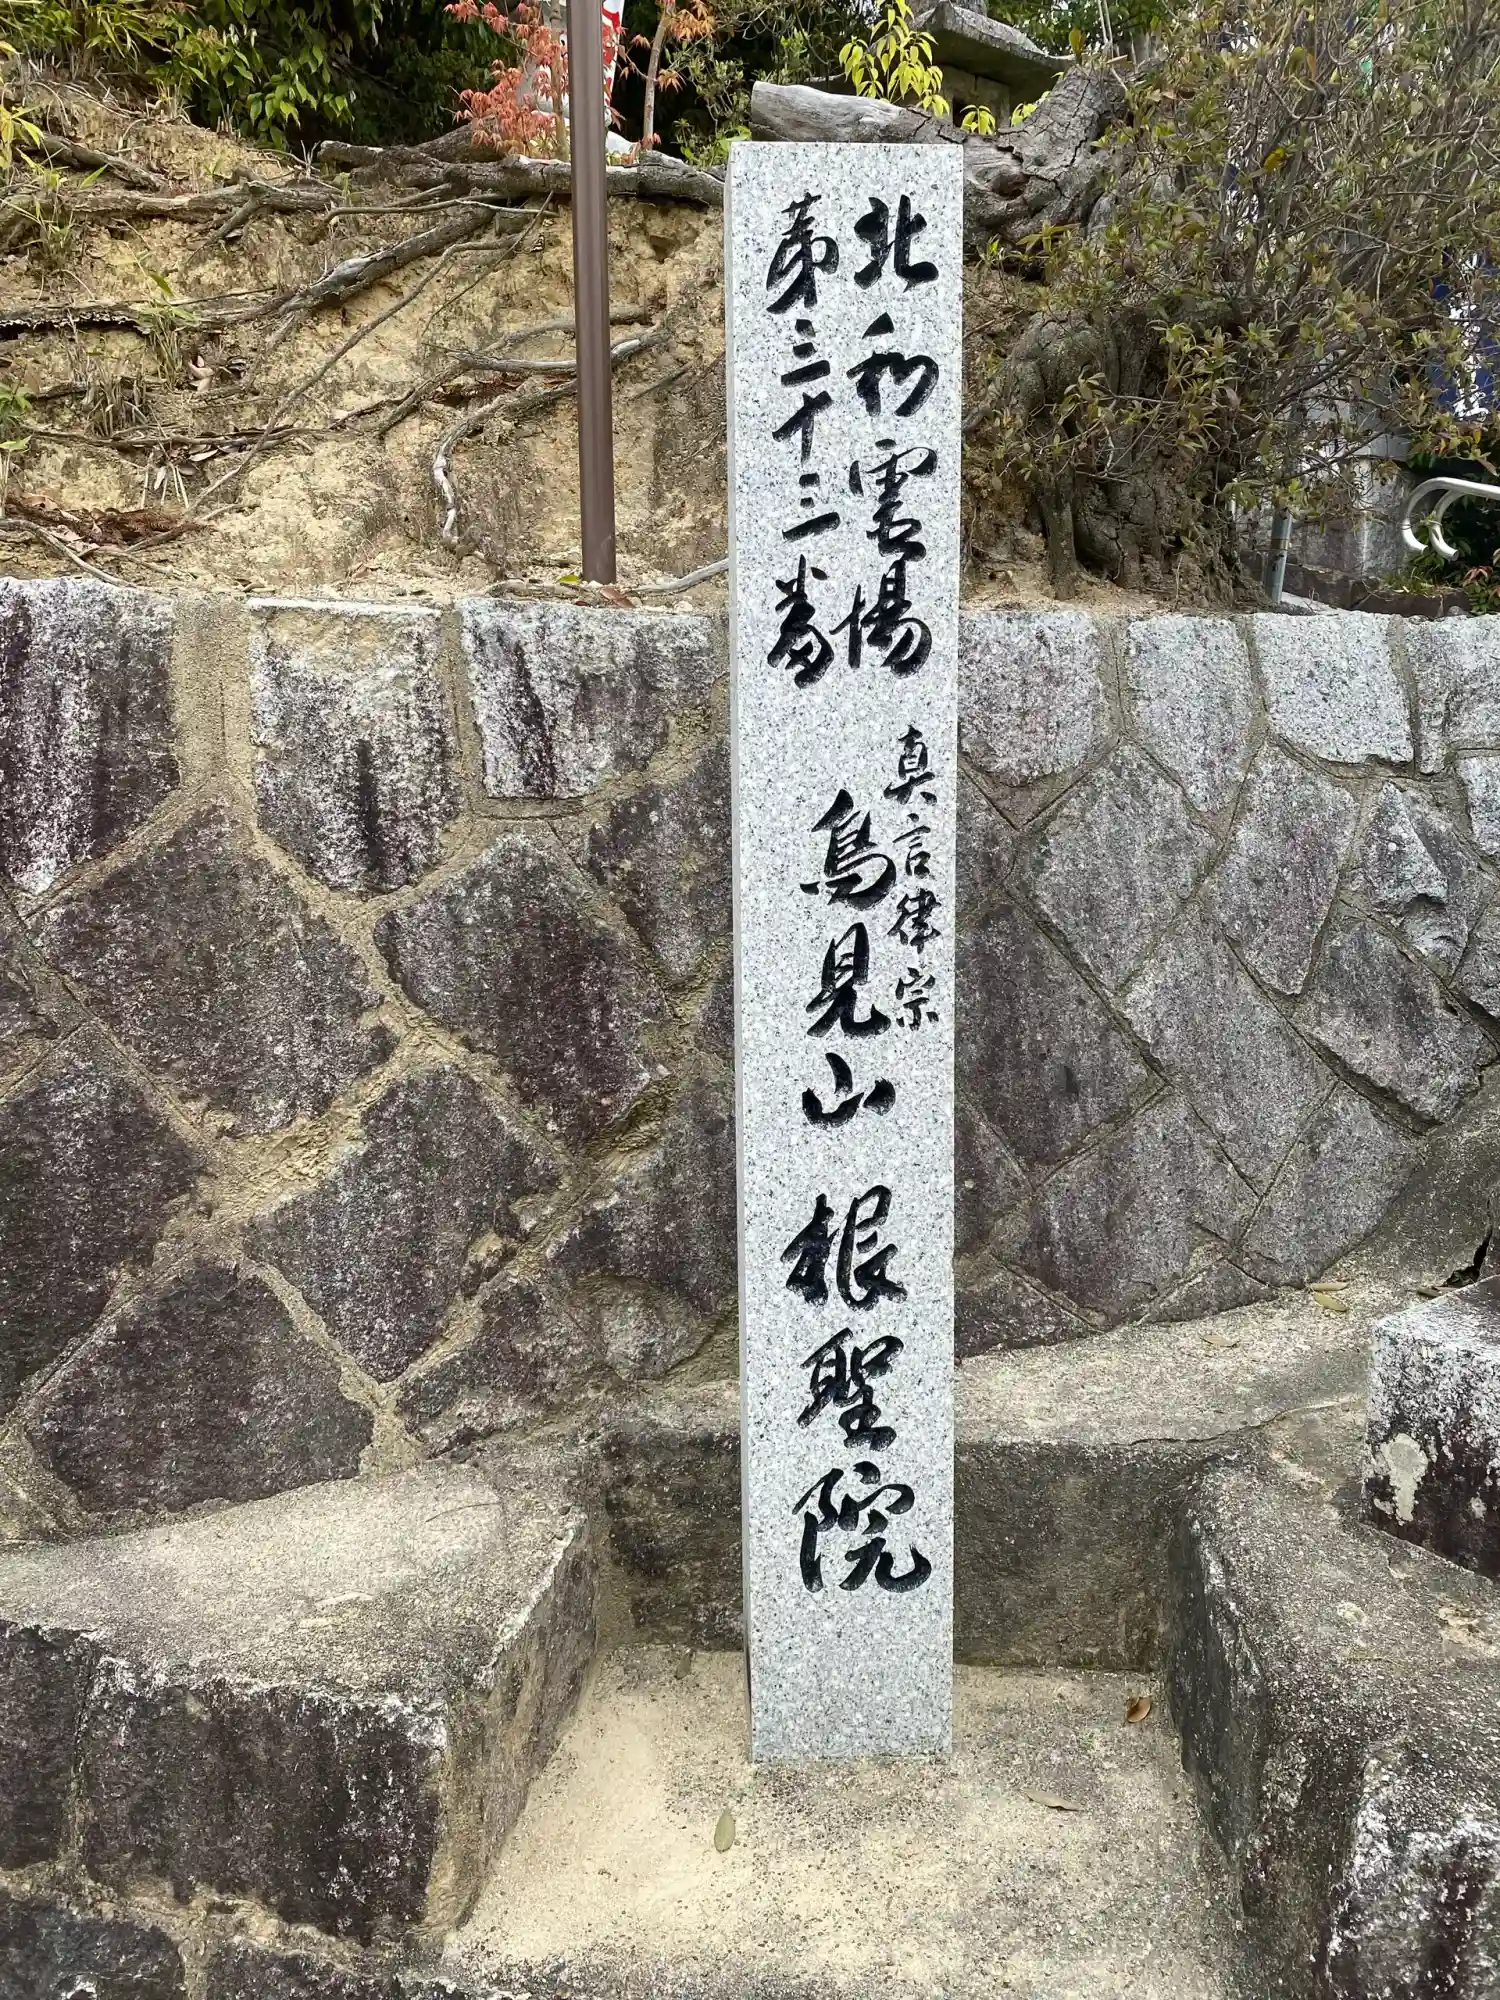 北和霊場
第三十三番
真言律宗
鳥見山 根聖院